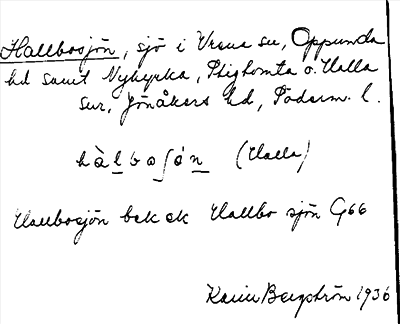 Hallbosjön, sjö i Vrena sn, Oppunda
hd samt Nykyrka, Stigtomta o. Halla
snr, Jönåkers hd, Söderm. l.
hàlboʃǿn (Halla)
Hallbosjön bek ek Hallbo sjön G66
Karin Bergström 1936